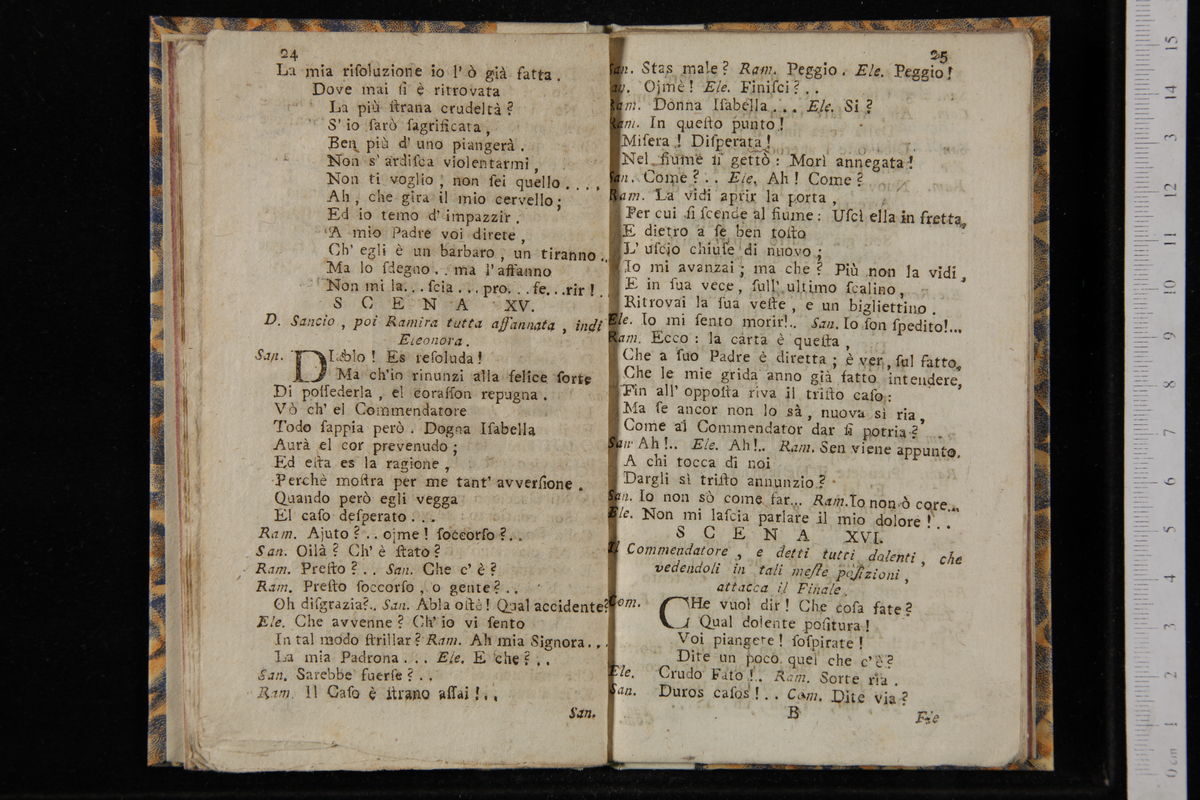 24
La mia riſoluzione io l' ò già fatta.
Dove mai ſi è ritrovata
La più ſtrana crudeltà?
S' io farò ſagrificata,
Ben più d' uno piangerà.
Non s' ardiſca violentarmi,
Non ti voglio, non ſei quello....
Ah, che gira il mio cervello;
Ed io temo d' impazzir.
A mio Padre voi direte,
Ch' egli è un barbaro, un tiranno..
Ma lo ſdegno.. ma l' affanno
Non mi la...ſcia...pro...fe...rir!..
SCENA XV.
D. Sancio, poi Ramira tutta affannata, indi
Eleonora.
San. DIablo! Es reſoluda!
Ma ch'io rinunzi alla felice ſorte
Di poſſederla, el coraſſon repugna.
Vò ch' el Commendatore
Todo ſappia però. Dogna Iſabella
Aurà el cor prevenudo;
Ed eſta es la ragione,
Perchè moſtra per me tant' avverſione.
Quando però egli vegga
El caſo deſperato...
Ram. Ajuto?.. ojme! ſoccorſo?..
San. Oilà? Ch' è ſtato?
Ram. Preſto?.. San. Che c' è?
Ram. Preſto ſoccorſo, o gente?..
Oh diſgrazia?.. San. Abla oſtè! Qual accidente?
Ele. Che avvenne? Ch' io vi ſento
In tal modo ſtrillar? Ram. Ah mia Signora...
La mia Padrona... Ele. E che?..
San. Sarebbe fuerſe?..
Ram. Il Caſo è ſtrano aſſai!..
San.
25
San. Stas male? Ram. Peggio. Ele. Peggio!
San. Ojmè! Ele. Finiſci?..
Ram. Donna Iſabella... Ele. Si?
Ram. In queſto punto!
Miſera! Diſperata!
Nel fiume ſi gettò: Morì annegata!
San. Come?.. Ele. Ah! Come?
Ram. La vidi aprir la porta,
Per cui ſi ſcende al fiume: Uſcì ella in fretta,
E dietro a ſe ben toſto
L' uſcio chiuſe di nuovo;
Io mi avanzai; ma che? Più non la vidi,
E in ſua vece, ſull' ultimo ſcalino,
Ritrovai la ſua veſte, e un bigliettino.
Ele. Io mi ſento morir!.. San. Io ſon ſpedito!...
Ram. Ecco: la carta è queſta,
Che a ſuo Padre è diretta; è ver, ſul fatto,
Che le mie grida anno già fatto intendere,
Fin all' oppoſta riva il triſto caſo:
Ma ſe ancor non lo sà, nuova sì ria,
Come al Commendator dar ſi potria?
San Ah!.. Ele. Ah!.. Ram. Sen viene appunto.
A chi tocca di noi
Dargli sì triſto annunzio?
San. Io non sò come far... Ram. Io non ò core...
Ele. Non mi laſcia parlare il mio dolore!..
SCENA XVI.
Il Commendatore, e detti tutti dolenti, che
vedendoli in tali meſte poſizioni,
attacca il Finale.
Com. CHe vuol dir! Che coſa fate?
Qual dolente poſitura!
Voi piangete! ſoſpirate!
Dite un poco quel che c' è?
Ele. Crudo Fato!.. Ram. Sorte ria.
San. Duros caſos!.. Com. Dite via?
B
Fie